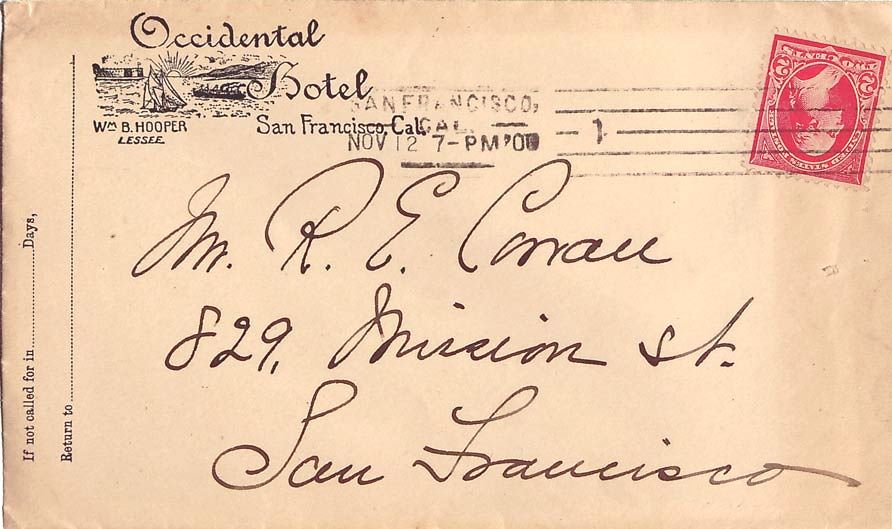 Occidental
Hotel
Wm B. HOOPER
LESSEE.
San Francisco, Cal.
SAN FRANCISCO,
CAL.
NOV 12 7-PM '00
1
Mr. R. E.
829, Mission St.
San Francisco
If not called for in Days,
Return to